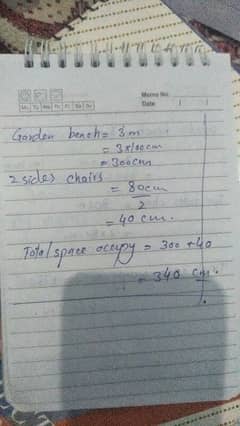 Memo No.
Mo Tu We Th Fr Sa Su
Date
Garden bench = 3m
= 3x100cm
= 300cm
2 sides chairs
= 80cm
2
= 40 cm.
Total space occupy = 300 + 40
= 340 cm.